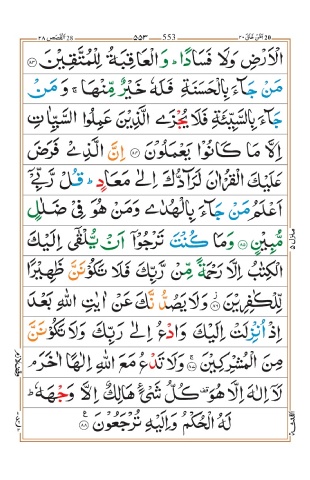 القصص ٢٨ 28 ٥٥٣ 553 امن خلق ٢٠ 20
الْاَرْضِ وَلَا فَسَادًا ؕ وَ الْعَاقِبَةُ لِلْمُتَّقِيْنَ ۝۸۳
مَنْ جَآءَ بِالْحَسَنَةِ فَلَهٗ خَيْرٌ مِّنْهَا ۚ وَ مَنْ
جَآءَ بِالسَّيِّئَةِ فَلَا يُجْزَى الَّذِيْنَ عَمِلُوا السَّيِّاٰتِ
اِلَّا مَا كَانُوْا يَعْمَلُوْنَ ۝۸۴ اِنَّ الَّذِيْ فَرَضَ
عَلَيْكَ الْقُرْاٰنَ لَرَآدُّكَ اِلٰى مَعَادٍ ؕ قُلْ رَّبِّيْۤ
اَعْلَمُ مَنْ جَآءَ بِالْهُدٰى وَمَنْ هُوَ فِيْ ضَلٰلٍ
مُّبِيْنٍ ۝۸۵ وَمَا كُنْتَ تَرْجُوْۤا اَنْ يُّلْقٰۤى اِلَيْكَ
الْكِتٰبُ اِلَّا رَحْمَةً مِّنْ رَّبِّكَ فَلَا تَكُوْنَنَّ ظَهِيْرًا
لِّلْكٰفِرِيْنَ ۝۸۶ وَلَا يَصُدُّنَّكَ عَنْ اٰيٰتِ اللّٰهِ بَعْدَ
اِذْ اُنْزِلَتْ اِلَيْكَ وَادْعُ اِلٰى رَبِّكَ وَلَا تَكُوْنَنَّ
مِنَ الْمُشْرِكِيْنَ ۝۸۷ وَلَا تَدْعُ مَعَ اللّٰهِ اِلٰهًا اٰخَرَ ۘ
لَاۤ اِلٰهَ اِلَّا هُوَ ۫ كُلُّ شَيْءٍ هَالِكٌ اِلَّا وَجْهَهٗ ؕ
لَهُ الْحُكْمُ وَاِلَيْهِ تُرْجَعُوْنَ ۝۸۸